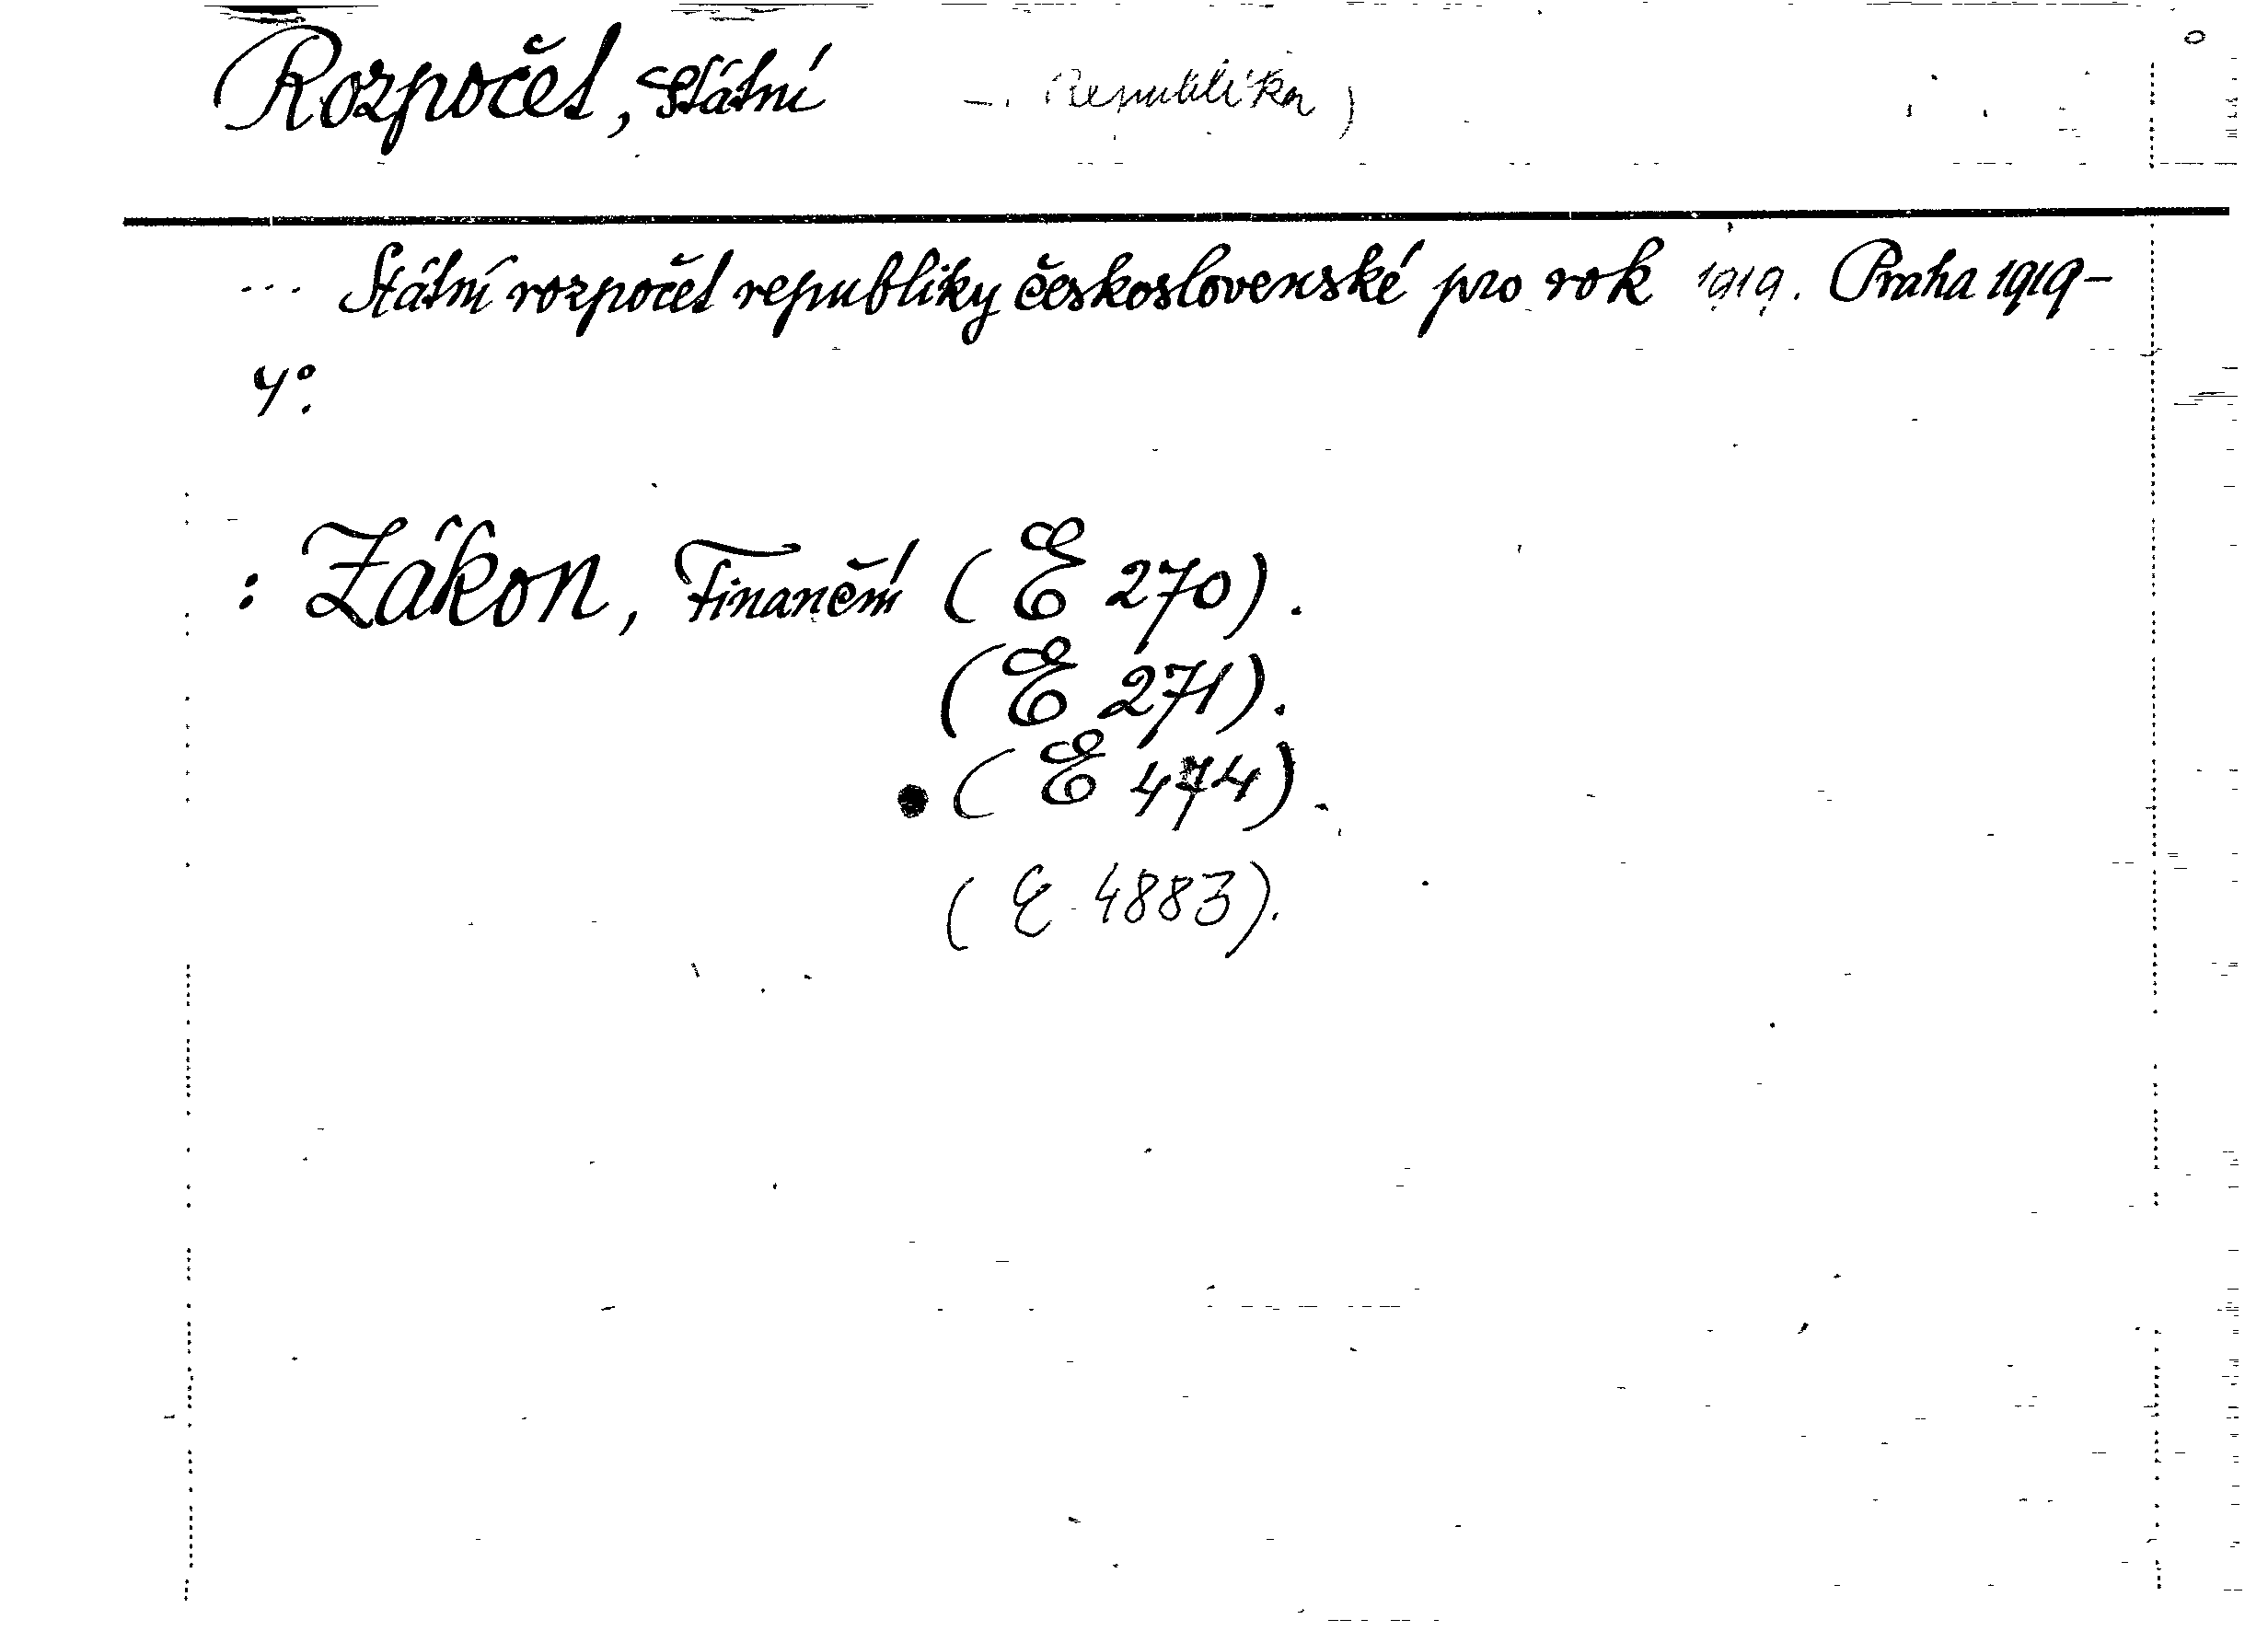 Rozpočet, Státní – Republika)
... Státní rozpočet republiky československé pro rok 1919. Praha 1919-
4°.
: Zákon, Finanční (E 270).
(E 271).
(E 474).
(E 4883).